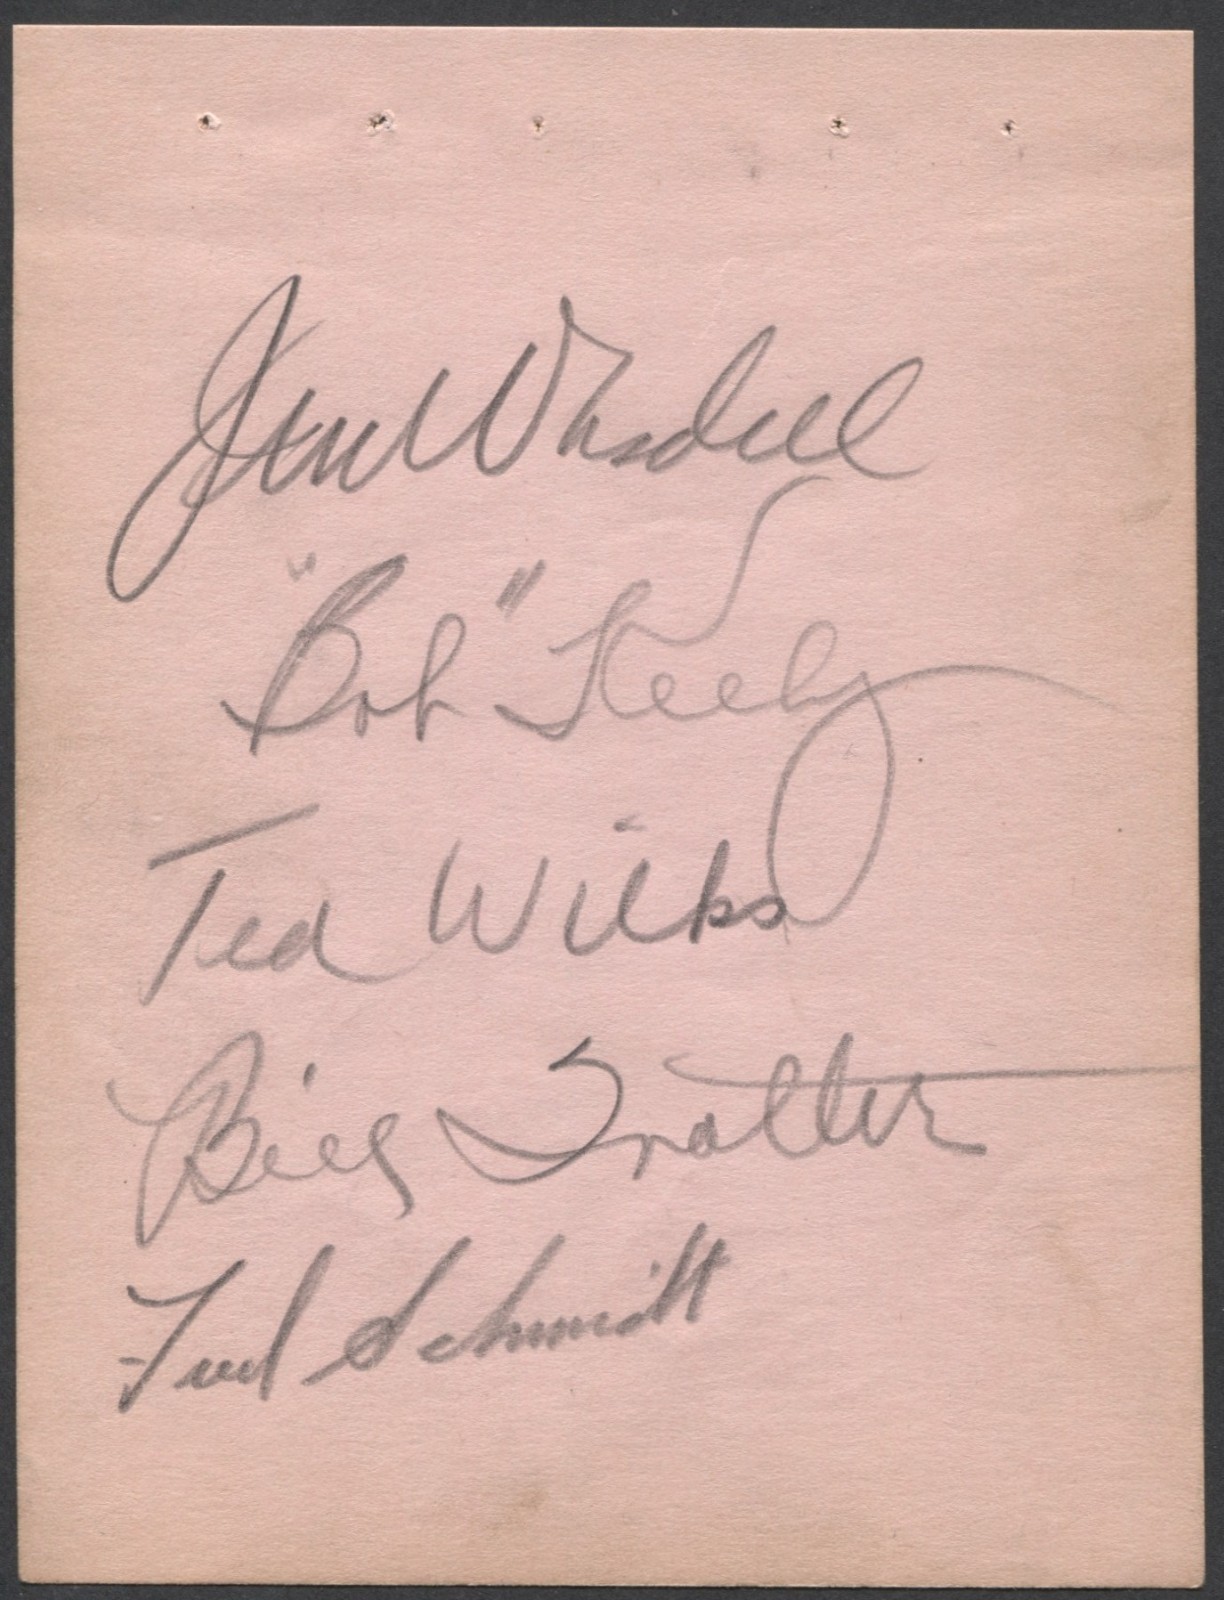 Jim Wasdell
"Bob" Keely
Ted Wilks
Bill Trotter
Fred Schmidt